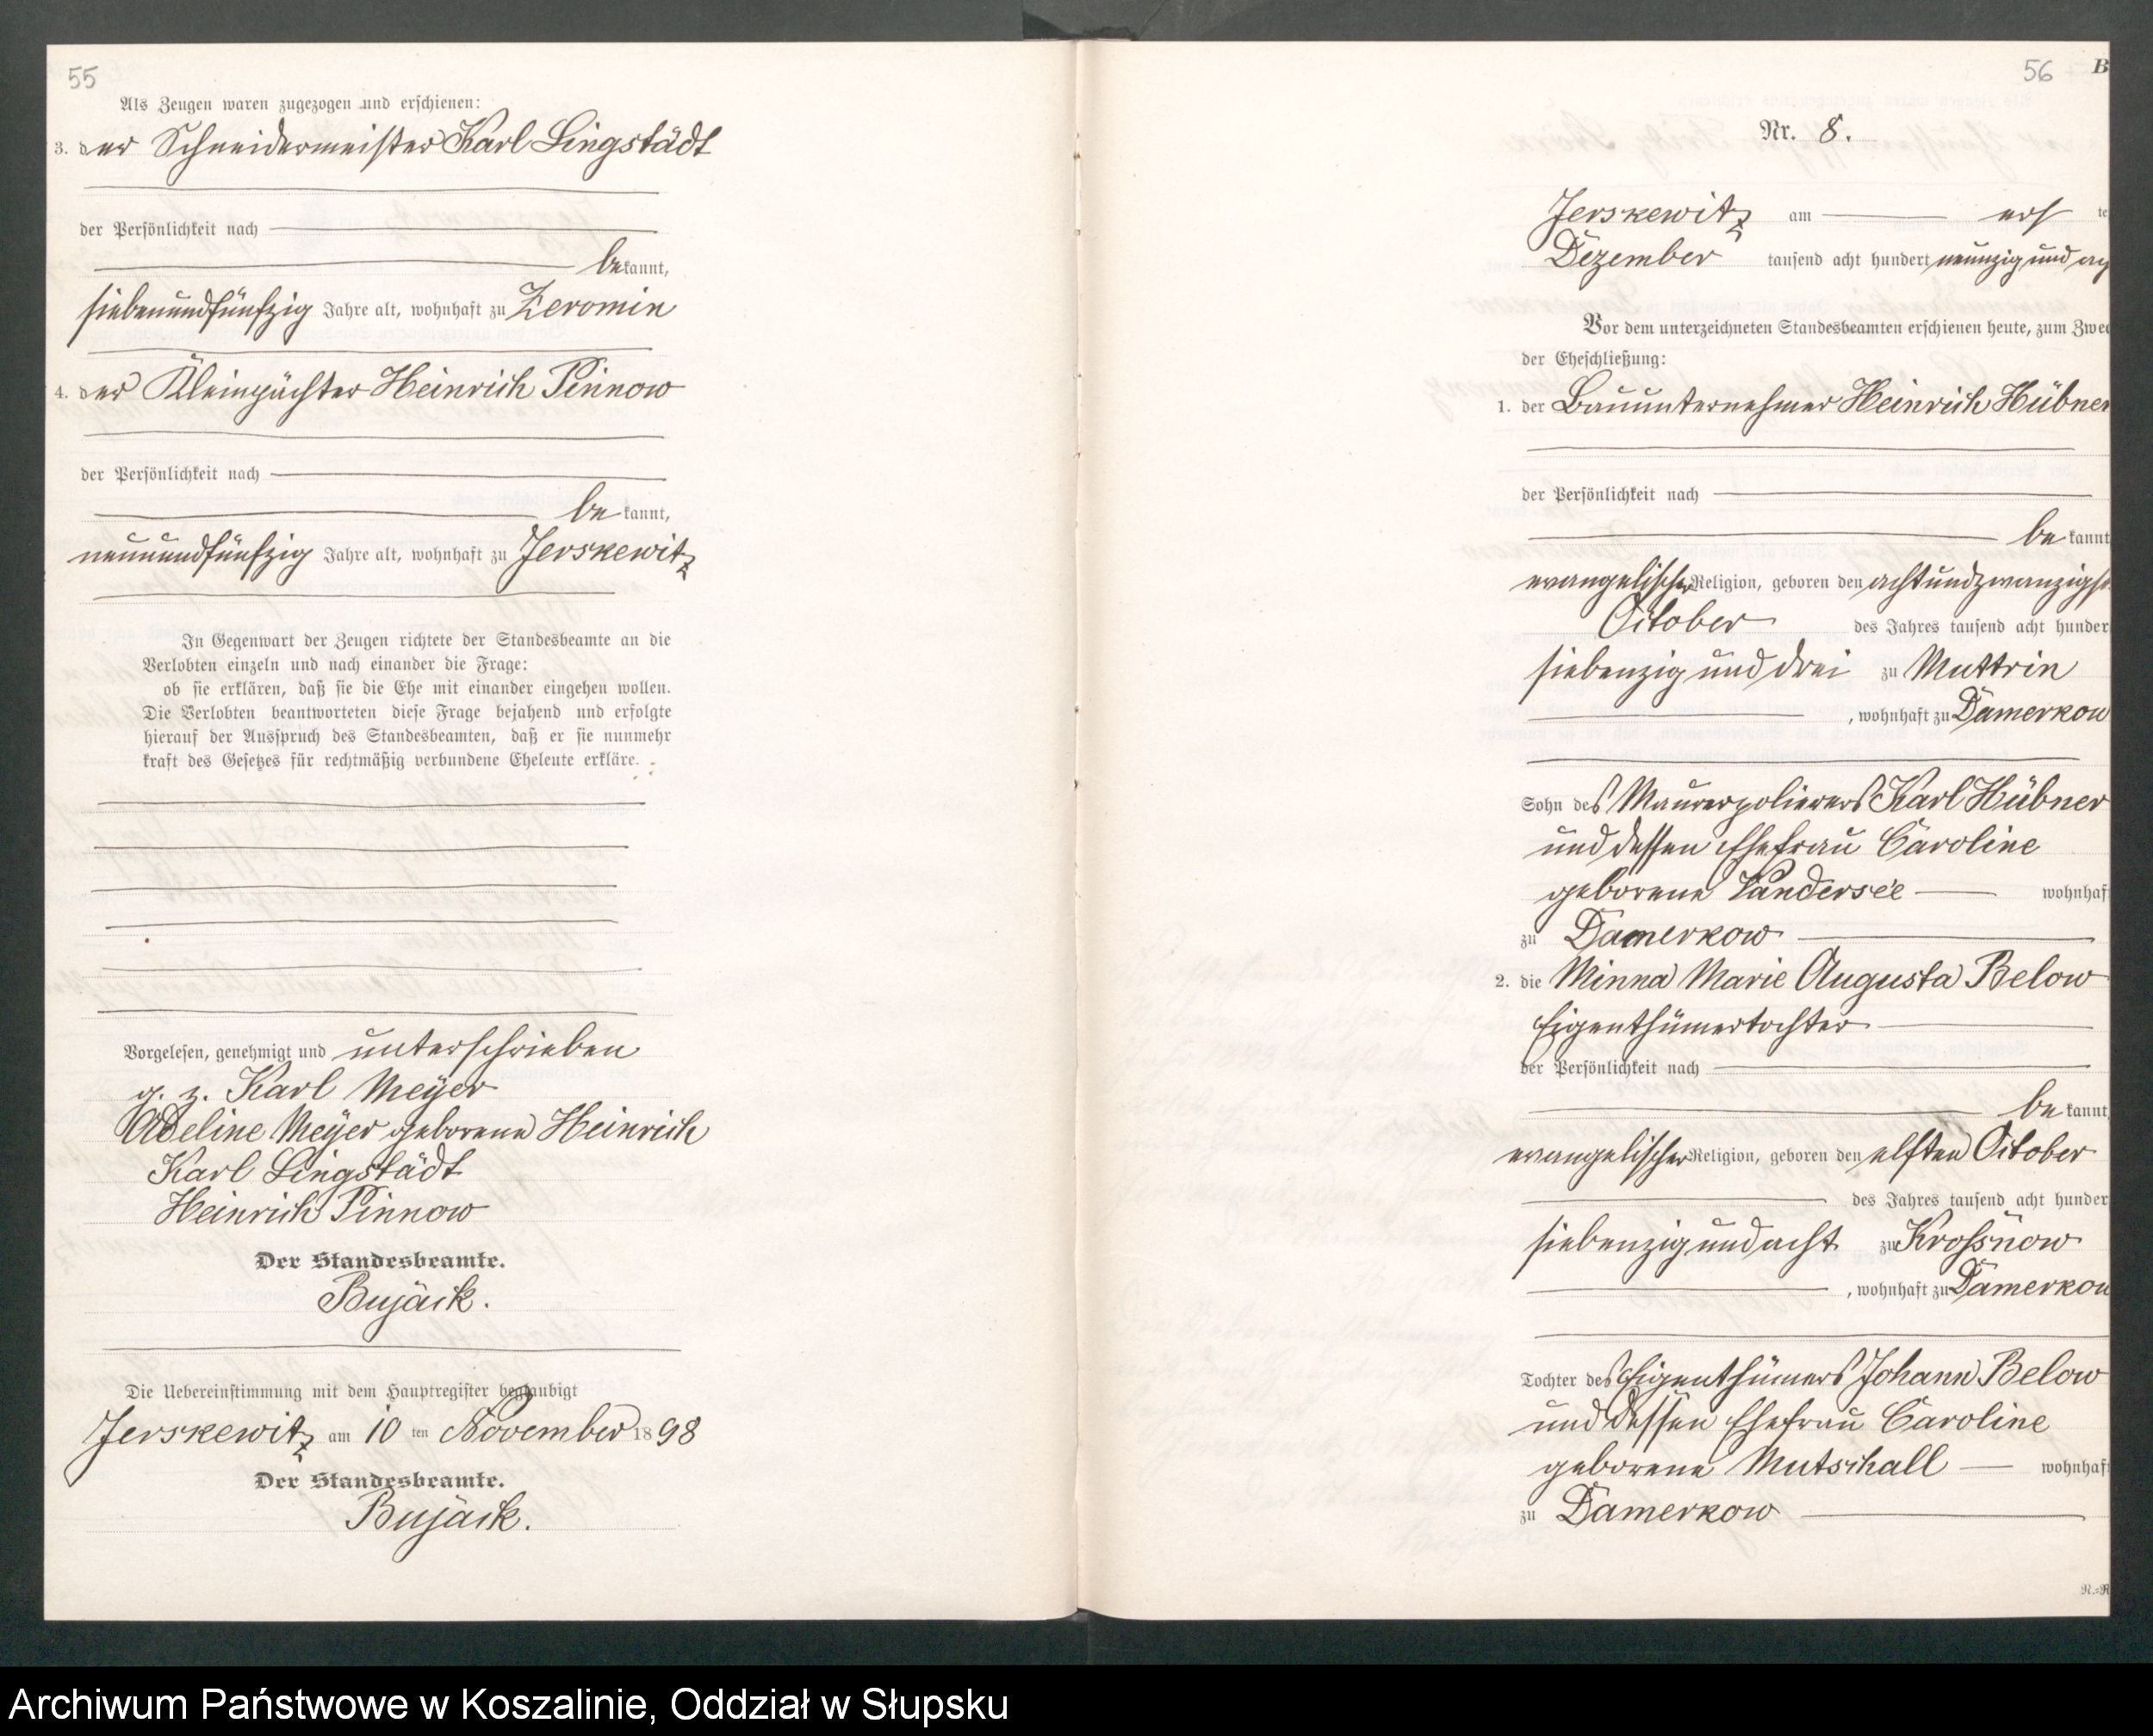 55
Als Zeugen waren zugezogen und erschienen:
3. der Schneidermeister Karl Lingstädt
der Persönlichkeit nach
bekannt,
siebenundfünfzig Jahre alt, wohnhaft zu Zeromin
4. der Kleinpächter Heinrich Pinnow
der Persönlichkeit nach
be kannt,
neunundfünfzig Jahre alt, wohnhaft zu Jerskewitz
In Gegenwart der Zeugen richtete der Standesbeamte an die
Verlobten einzeln und nach einander die Frage:
ob sie erklären, daß sie die Ehe mit einander eingehen wollen.
Die Verlobten beantworteten diese Frage bejahend und erfolgte
hierauf der Ausspruch des Standesbeamten, daß er sie nunmehr
kraft des Gesetzes für rechtmäßig verbundene Eheleute erkläre.
Vorgelesen, genehmigt und unterschrieben
g. z. Karl Meÿer
Adeline Meÿer geborene Heinrich
Karl Lingstädt
Heinrich Pinnow
Der Standesbeamte.
Bujack.
Die Uebereinstimmung mit dem Hauptregister beglaubigt
Jerskewitz am 10 ten November 1898
Der Standesbeamte.
Bujack.
56 B
Nr. 8.
Jerskewitz am ers te
Dezember tausend acht hundert neunzig und ac
Vor dem unterzeichneten Standesbeamten erschienen heute, zum Zwec
der Eheschließung:
1. der Bauunternehmer Heinrich Hübner
der Persönlichkeit nach
be kannt
evangelischer Religion, geboren den achtundzwanzigst
October des Jahres tausend acht hunder
siebenzig und drei zu Muttrin
, wohnhaft zu Damerkow
Sohn des Maurerpolierers Karl Hübner
und dessen Ehefrau Caroline
geborene Vandersee wohnhaf
zu Damerkow
2. die Minna Marie Augusta Below
Eigenthümertochter
der Persönlichkeit nach
be kannt,
evangelischer Religion, geboren den elften October
des Jahres tausend acht hunder
siebenzig und acht zu Kroßnow
, wohnhaft zu Damerkow
Tochter des Eigenthümers Johann Below
und dessen Ehefrau Caroline
geborene Mutschall wohnhaf
zu Damerkow
R.=R
Archiwum Państwowe w Koszalinie, Oddział w Słupsku